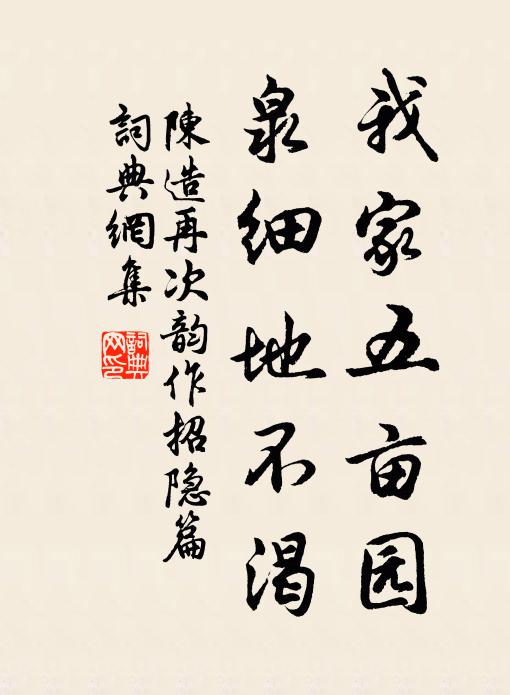 我家五亩园
泉细地不渴
陳造再次韵作招隐篇
詞典網集
詞典网印